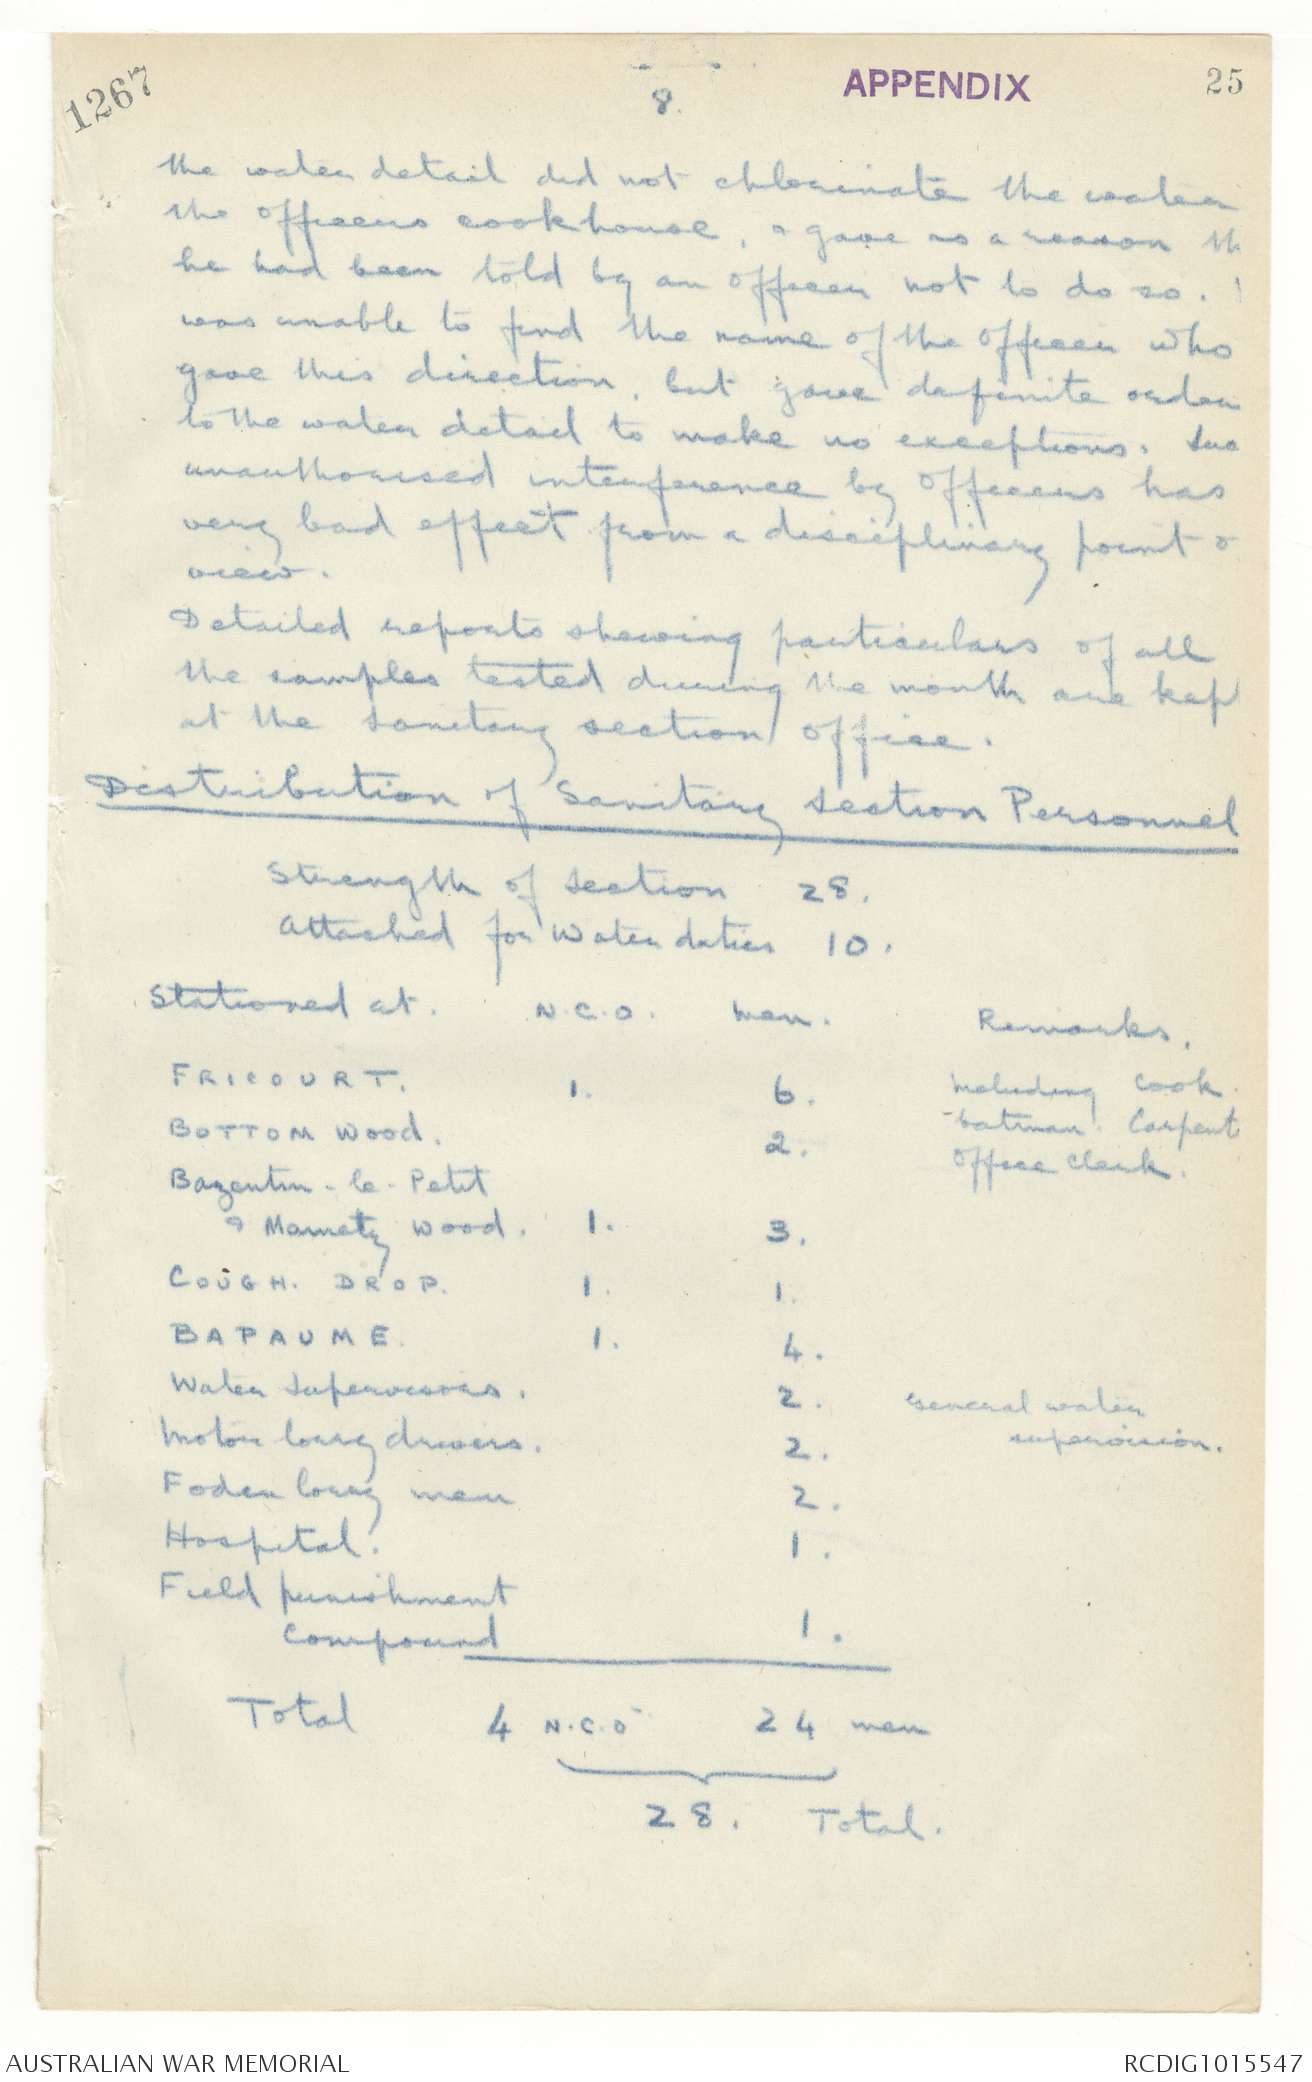 1267
8.
APPENDIX
25
the water detail did not chlorinate the water
the officers cookhouse, & gave as a reason th
he had been told by an officer not to do so.
was unable to find the name of the officer who
gave this direction, but gave definite order
to the water detail to make no exceptions. Suc
unauthorised interference by officers has
very bad effect from a disciplinary point o
view.
Detailed reports shewing particulars of all
the samples tested during the month are kep
at the sanitary section office.
Distribution of Sanitary Section Personnel
Strength of Section 28.
Attached for Water duties 10.
Stationed at. N.C.O. Men. Remarks.
FRICOURT. 1. 6. Including Cook.
batman. Carpent
BOTTOM Wood. 2. Office Clerk.
Bazentin-le-Petit
& Mametz Wood. 1. 3.
COUGH. DROP. 1. 1.
BAPAUME. 1. 4.
Water Supervisors. 2. General water
supervision.
Motor lorry drivers. 2.
Foden lorry men 2.
Hospital. 1.
Field punishment
Compound 1.
Total 4 N.C.O 24 men
28. Total.
AUSTRALIAN WAR MEMORIAL
RCDIG1015547